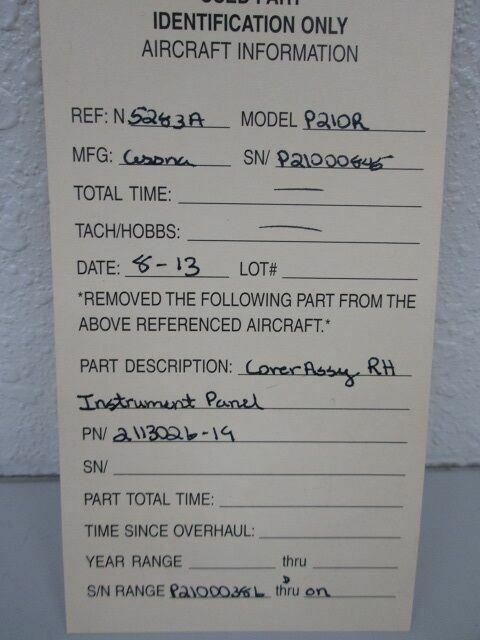 USED PART
IDENTIFICATION ONLY
AIRCRAFT INFORMATION
REF: N 5283A MODEL P210R
MFG: Cessna SN/ P21000845
TOTAL TIME: —
TACH/HOBBS: —
DATE: 8-13 LOT#
*REMOVED THE FOLLOWING PART FROM THE
ABOVE REFERENCED AIRCRAFT.*
PART DESCRIPTION: Cover Assy RH
Instrument Panel
PN/ 2113026-19
SN/
PART TOTAL TIME:
TIME SINCE OVERHAUL:
YEAR RANGE thru
S/N RANGE P21000386 thru on